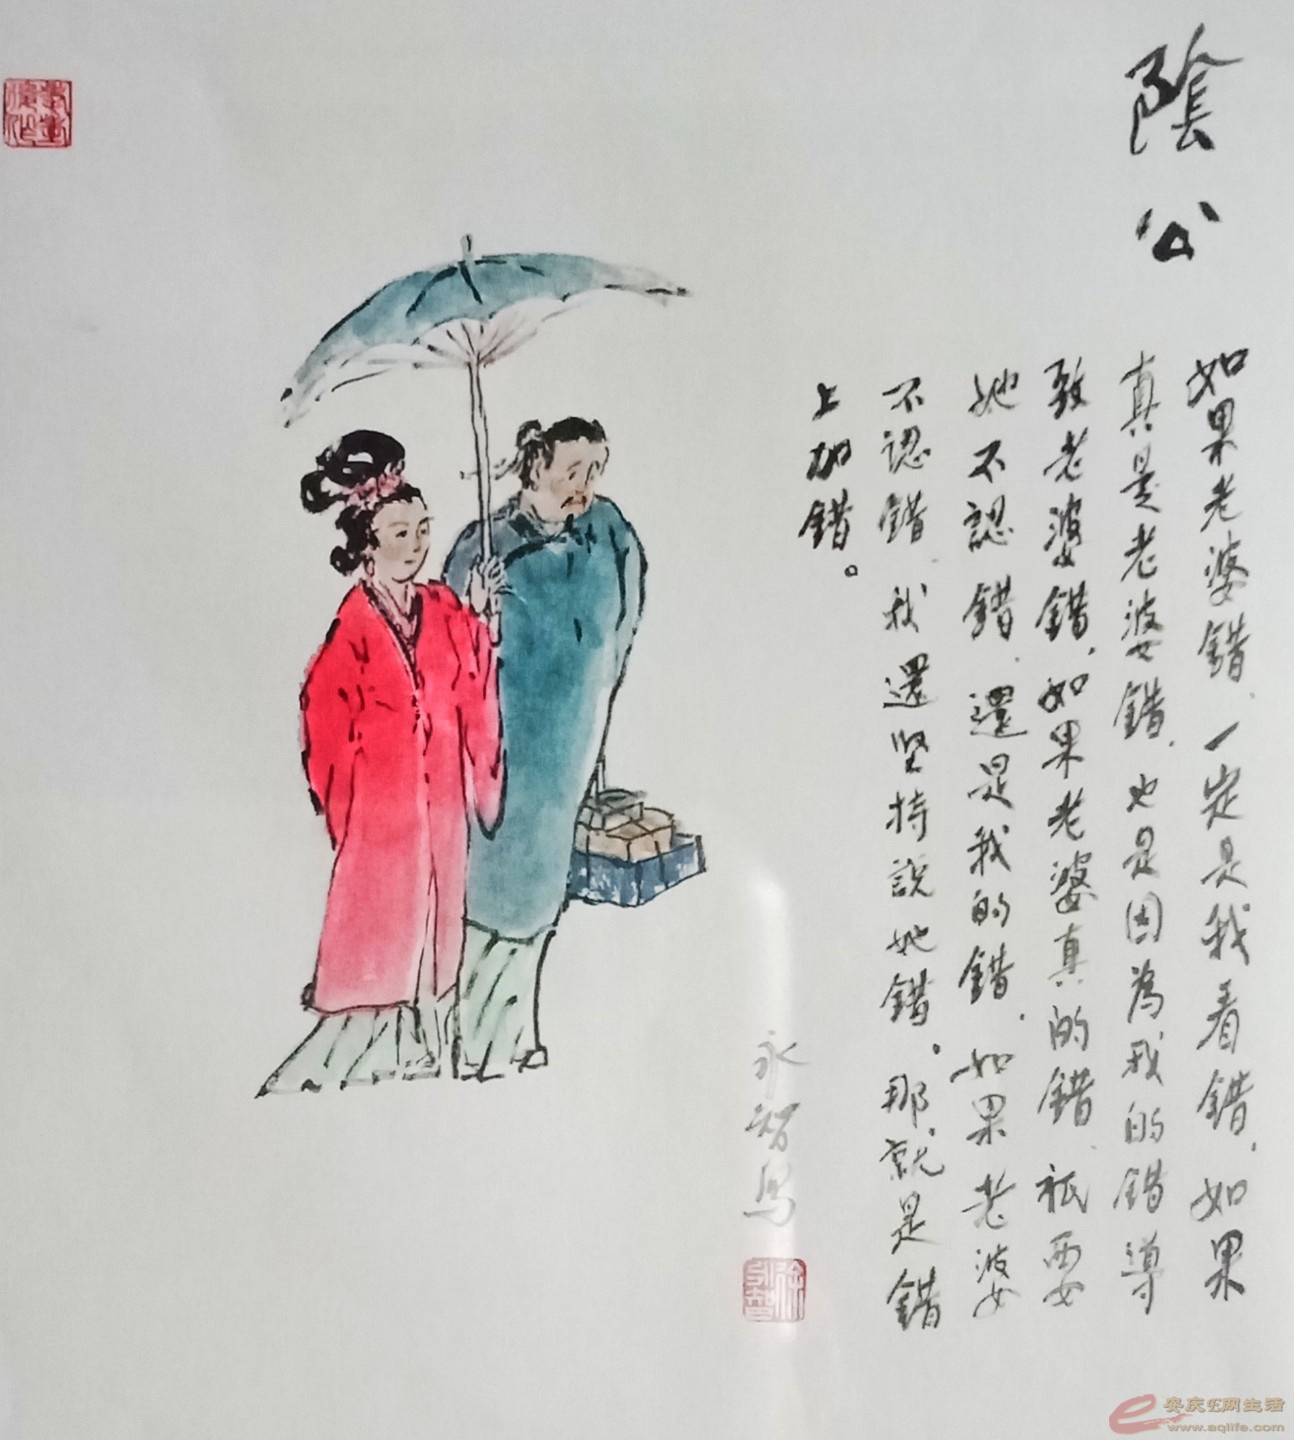 陰公
如果老婆錯、一定是我看錯、如果
真是老婆錯、也是因為我的錯導
致老婆錯、如果老婆真的錯、祇要
她不認錯、還是我的錯、如果老婆
不認錯、我還坚持說她錯。那就是錯
上加錯。
永智寫
安庆E网生活
www.aqlife.com